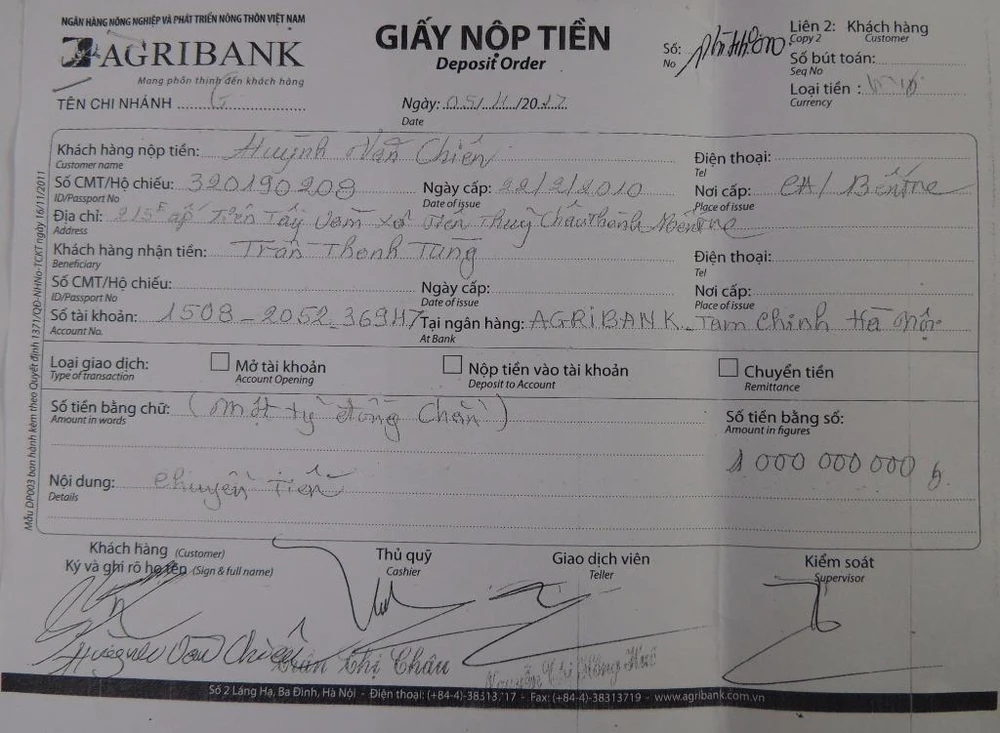 NGÂN HÀNG NÔNG NGHIỆP VÀ PHÁT TRIỂN NÔNG THÔN VIỆT NAM
AGRIBANK
Mang phồn thịnh đến khách hàng
TÊN CHI NHÁNH
GIẤY NỘP TIỀN
Deposit Order
Ngày: 05/11/2017
Date
Số:
No
Liên 2: Khách hàng
Copy 2 Customer
Số bút toán:
Seq No
Loại tiền :
Currency
Khách hàng nộp tiền: Huỳnh Văn Chiến
Customer name
Điện thoại:
Tel
Số CMT/Hộ chiếu: 320190208 Ngày cấp: 22/2/2010 Nơi cấp: CA/ Bến Tre
ID/Passport No Date of issue Place of issue
Địa chỉ: 215E ấp Tiên Tây Vàm xã Tiên Thuỷ Châu Thành Bến Tre
Address
Khách hàng nhận tiền: Trần Thanh Tùng Điện thoại:
Beneficiary Tel
Số CMT/Hộ chiếu: Ngày cấp: Nơi cấp:
ID/Passport No Date of issue Place of issue
Số tài khoản: 1508_2052_36947 Tại ngân hàng: AGRIBANK Tam Chinh Hà Nội
Account No. At Bank
Loại giao dịch: Mở tài khoản Nộp tiền vào tài khoản Chuyển tiền
Type of transaction Account Opening Deposit to Account Remittance
Số tiền bằng chữ: (một tỷ đồng chẵn) Số tiền bằng số:
Amount in words Amount in figures
1 000 000 000 đ
Nội dung: Chuyển Tiền
Details
Khách hàng (Customer) Thủ quỹ Giao dịch viên Kiểm soát
Ký và ghi rõ họ tên (Sign & full name) Cashier Teller Supervisor
Huỳnh Văn Chiến Trần Thị Châu Nguyễn Thị Hồng Huê
Số 2 Láng Hạ, Ba Đình, Hà Nội - Điện thoại: (+84-4)-38313717 - Fax: (+84-4)-38313719 - www.agribank.com.vn
Mẫu DP003 ban hành kèm theo Quyết định 1371/QĐ-NHNo-TCKT ngày 16/11/2011